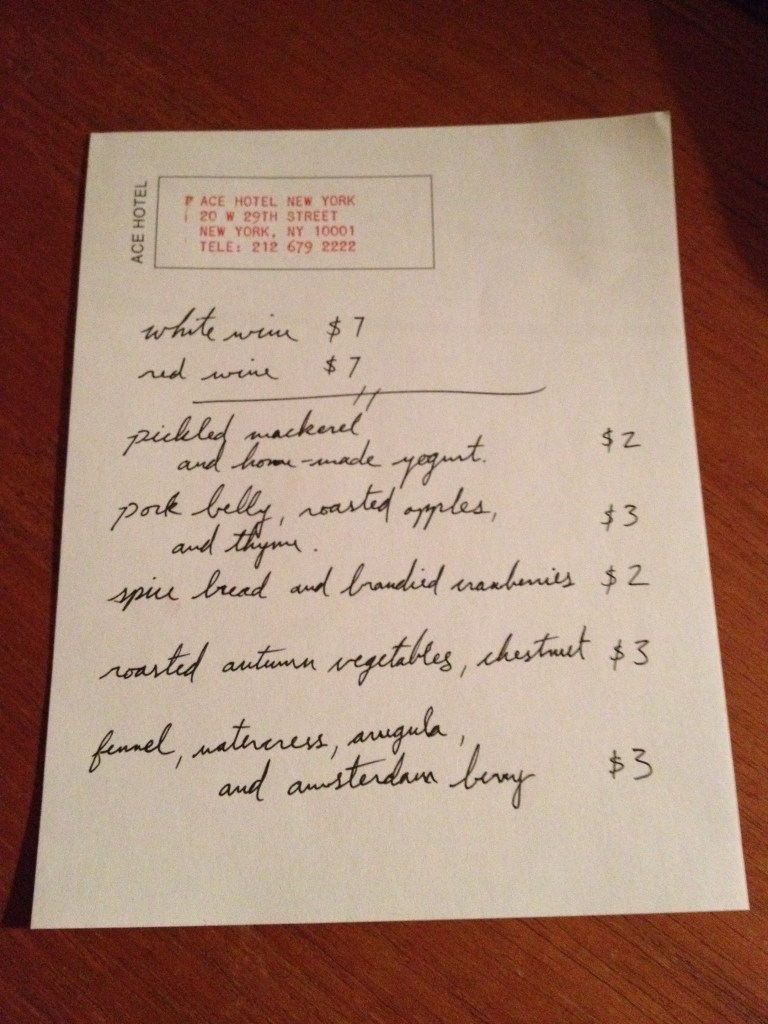 ACE HOTEL
ACE HOTEL NEW YORK
20 W 29TH STREET
NEW YORK, NY 10001
TELE: 212 679 2222
white wine $7
red wine $7
pickled mackerel
and home-made yogurt. $2
pork belly, roasted apples,
and thyme. $3
spice bread and brandied cranberries $2
roasted autumn vegetables, chestnut $3
fennel, watercress, arugula,
and amsterdam berry $3